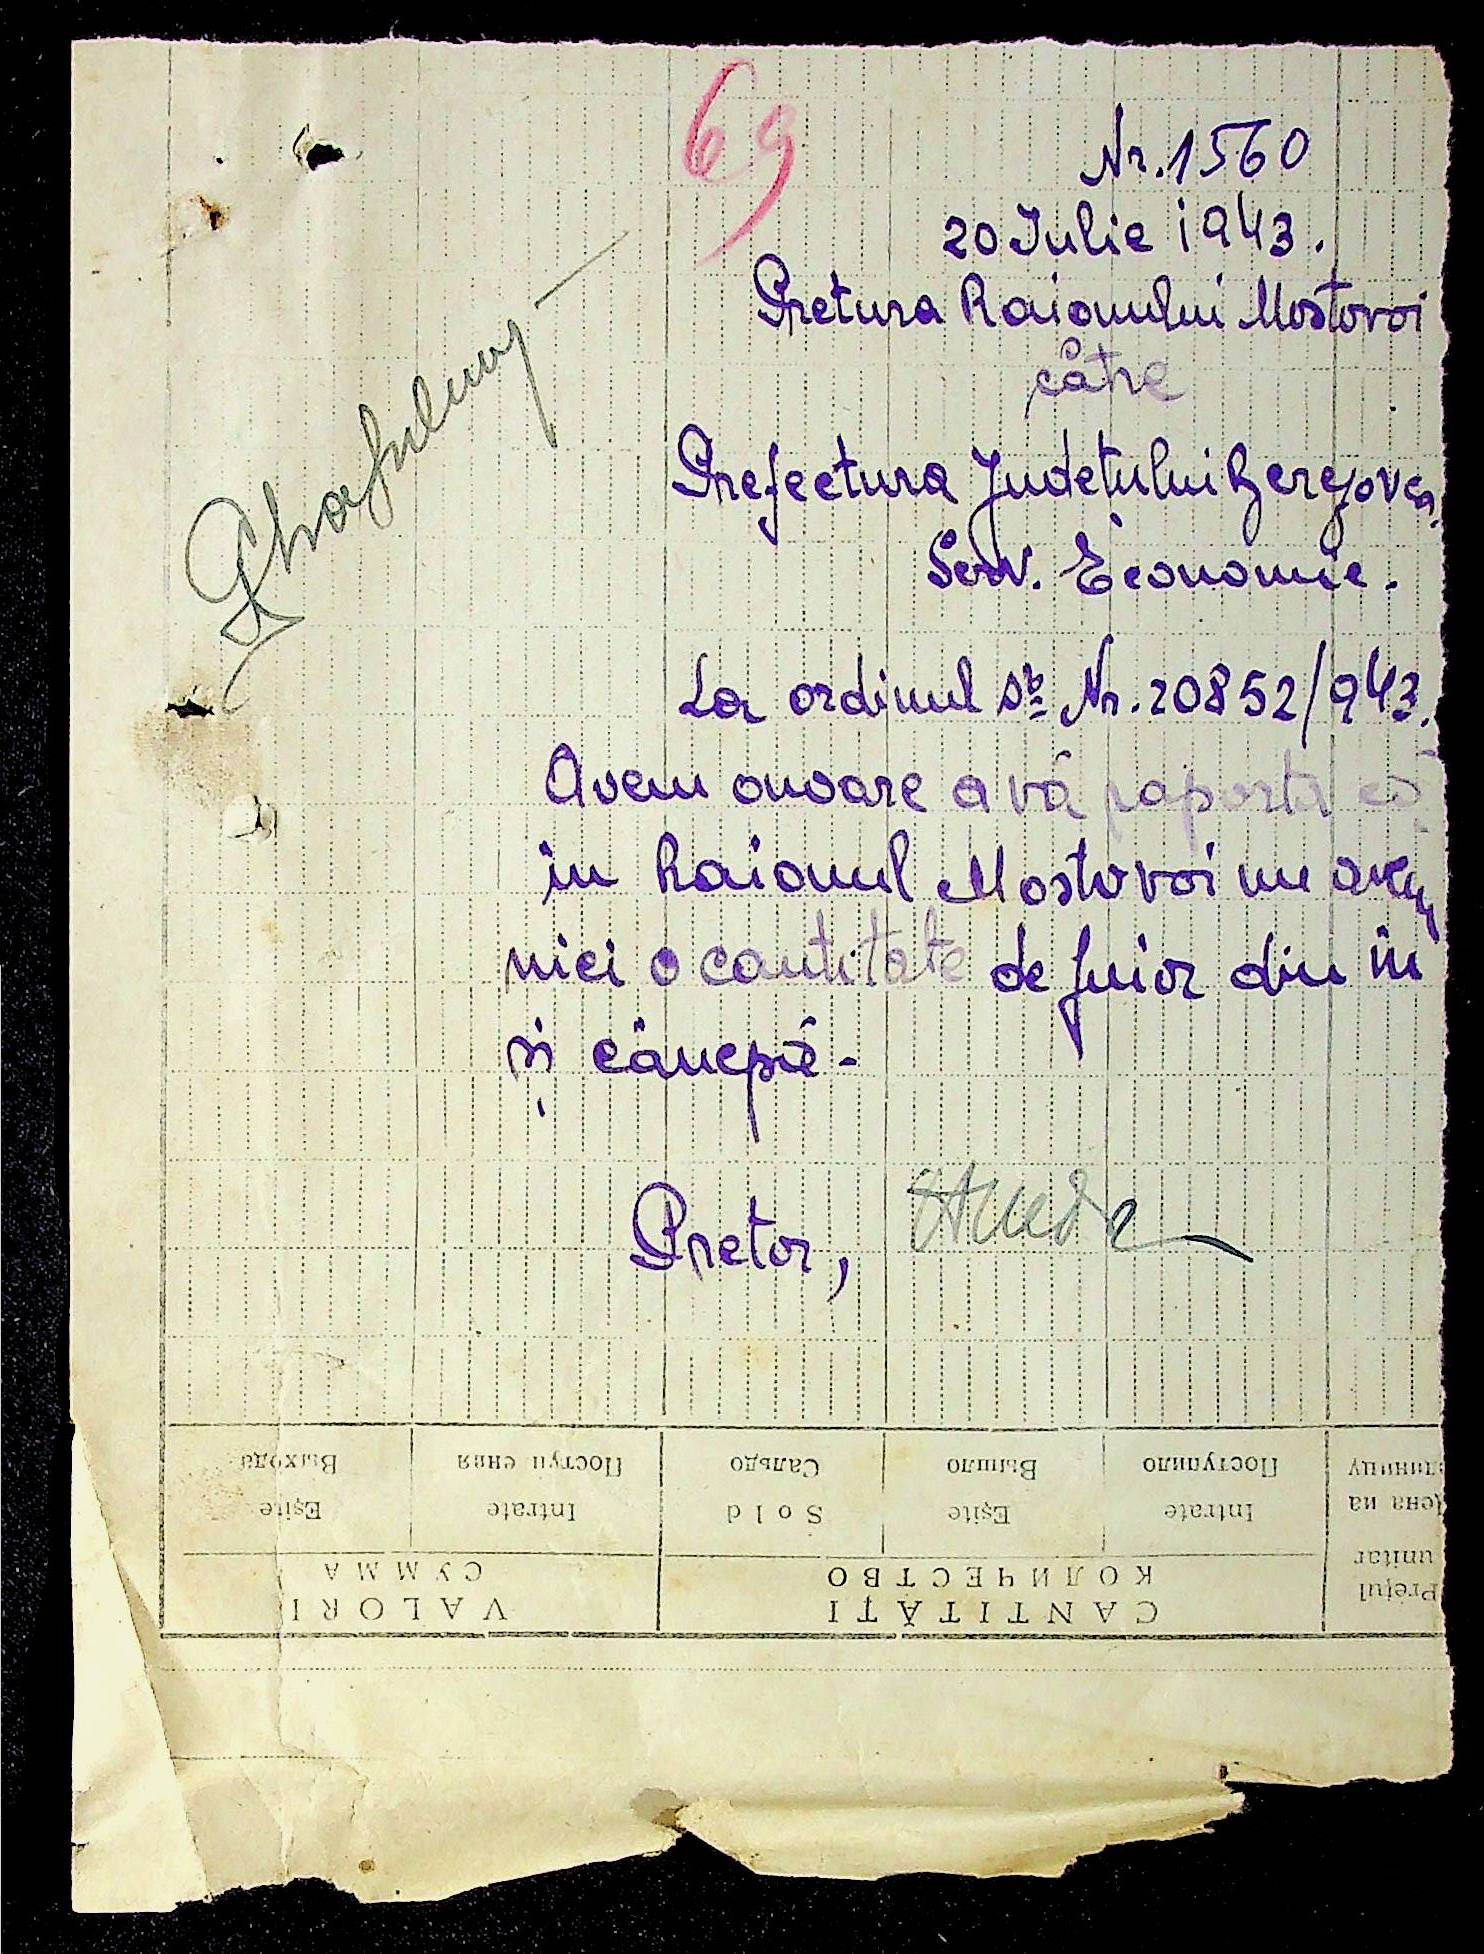 69
Nr. 1560
20 Iulie 1943.
Pretura Raionului Mostovoi
către
Prefectura Judetului Berezovca
Serv. Economic.
La ordinul Dv. Nr. 20852/943.
Avem onoare a vă raporta că
in Raionul Mostovoi nu avem
nici o cantitate de fuior din in
și cânepă -
Pretor,
Выхода Поступ ения Сальдо Вышло Поступило единицу
Eşite Intrate Sold Eşite Intrate Цена на
СУММА КОЛИЧЕСТВО unitar
VALORI CANTITĂŢI Preţul